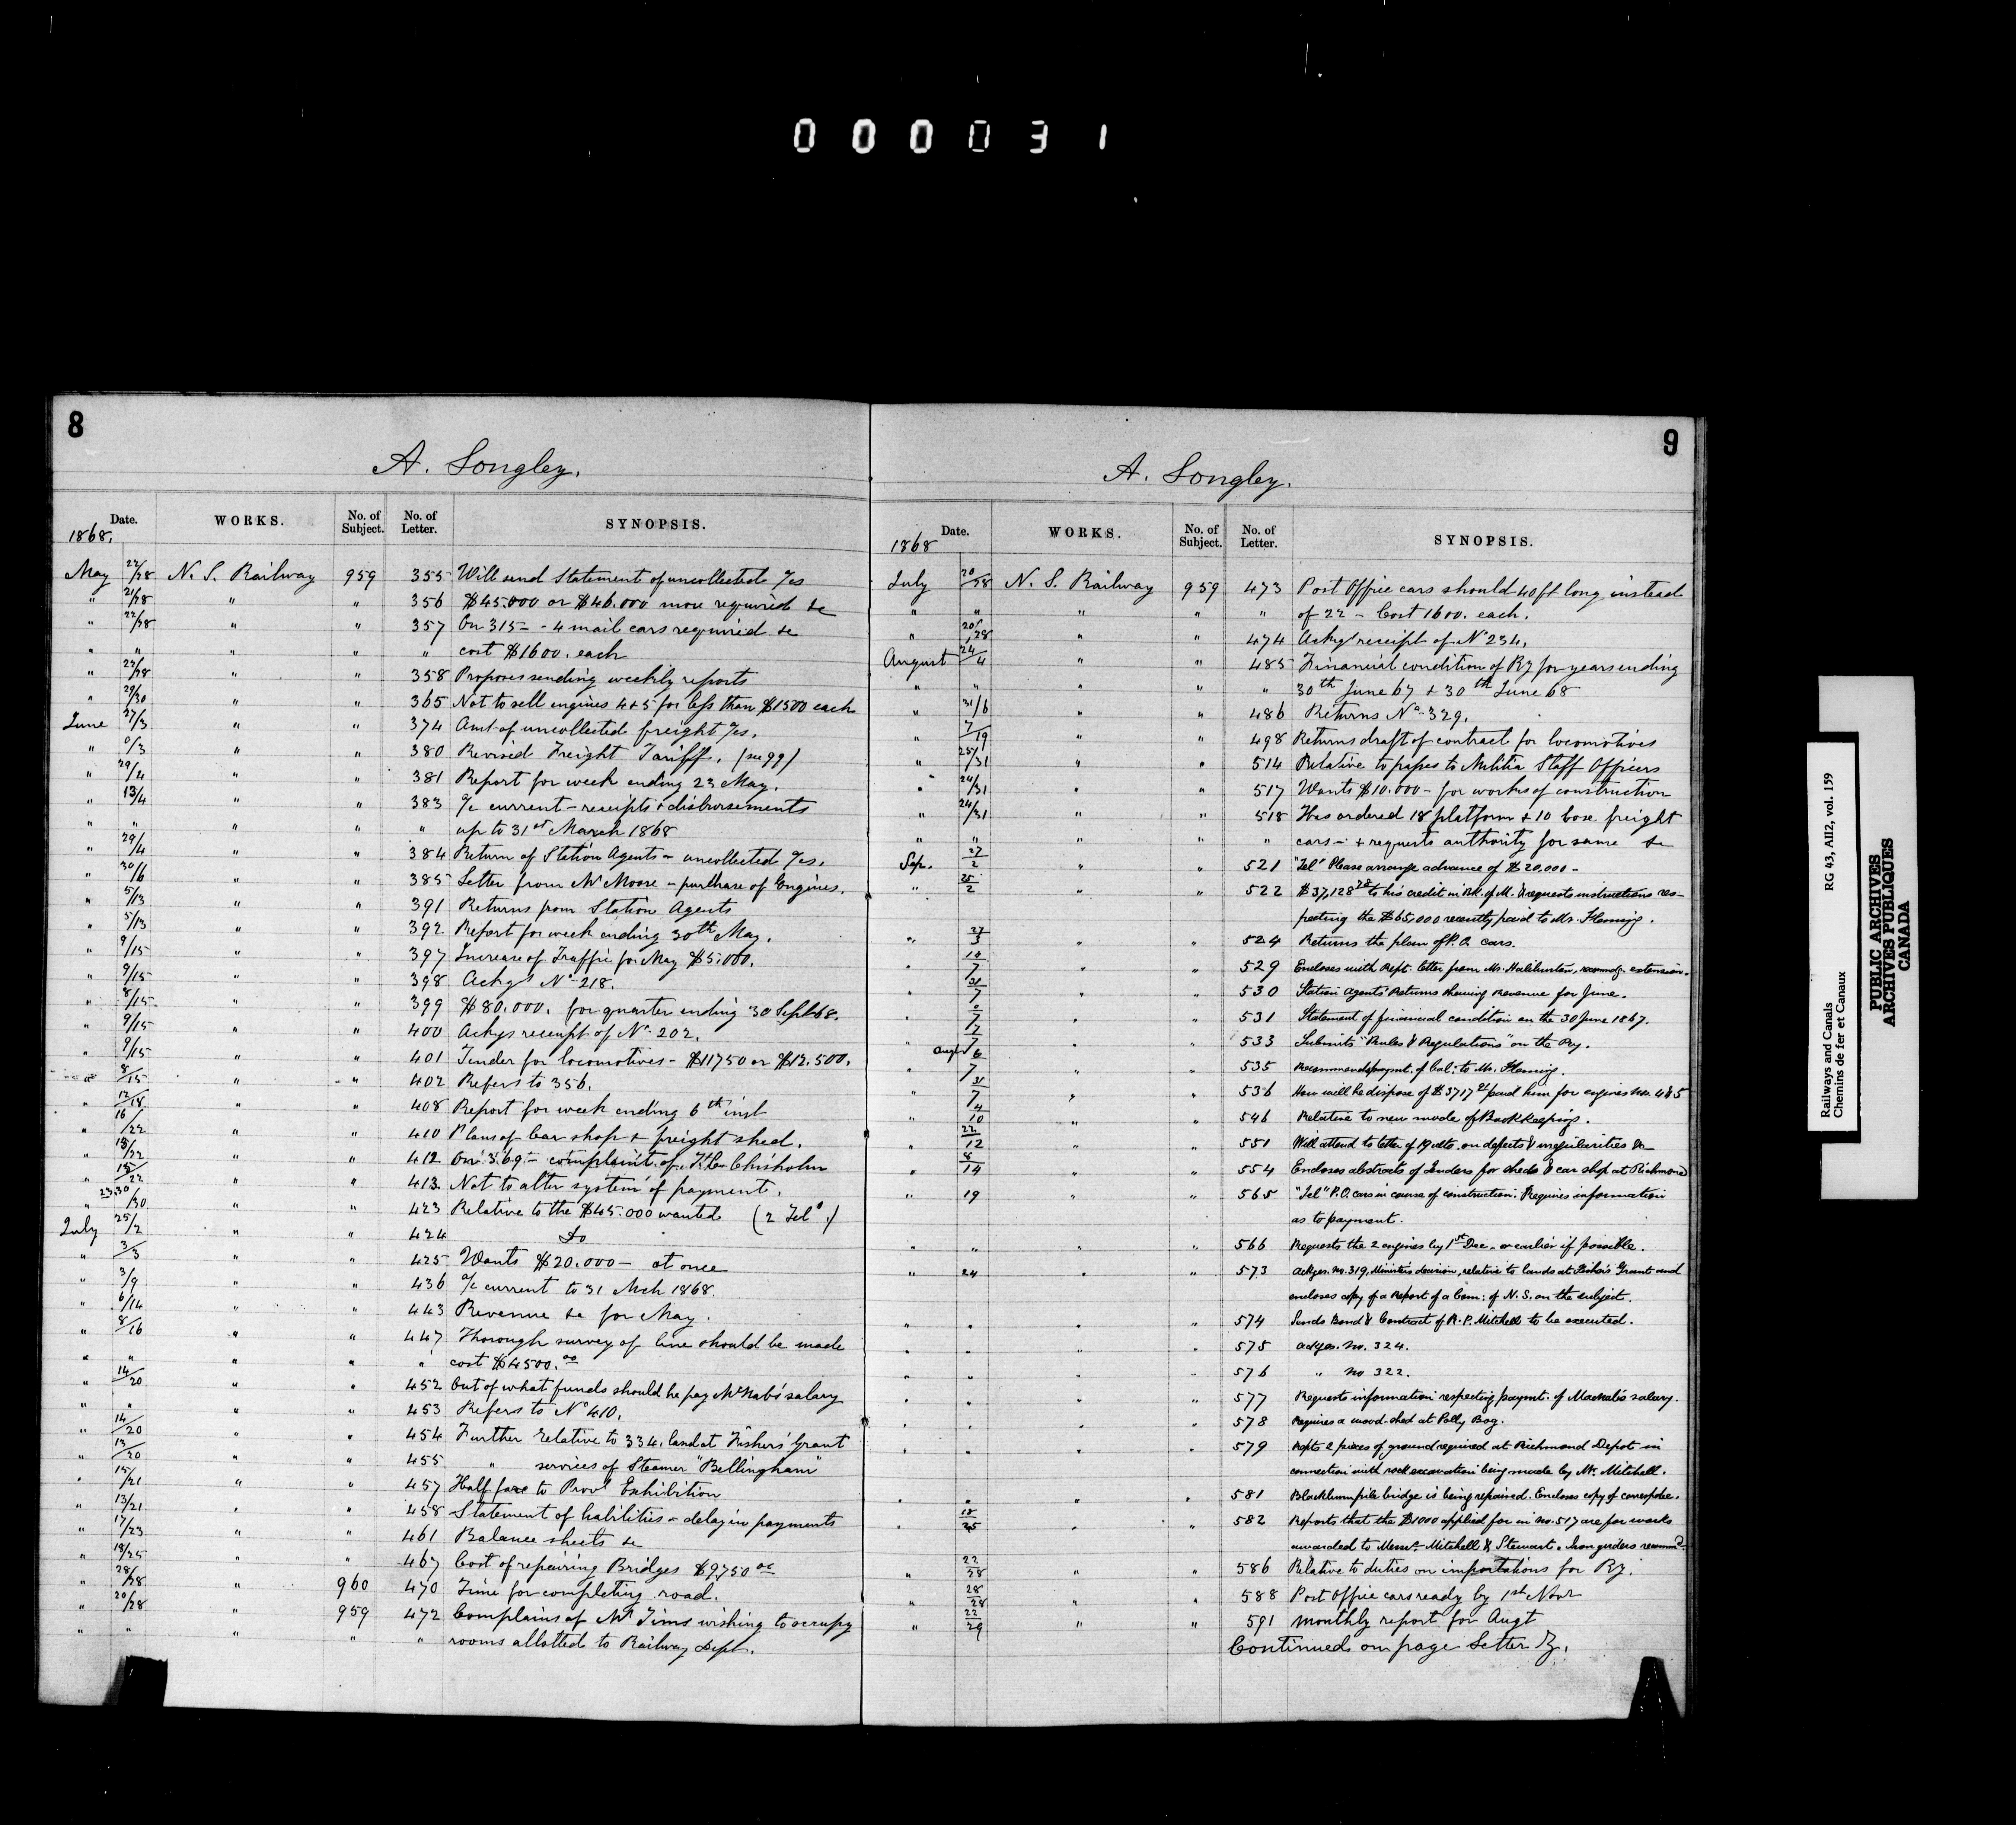 000031
8
A. Longley.
Date. WORKS. No. of Subject. No. of Letter. SYNOPSIS.
1868.
May 22/28 N. S. Railway 959 355 Will send Statement of uncollected
" 21/28 " " 356 $45.000 or $46.000 more required &c
" 22/28 " " 357 On 315 - 4 mail cars required &c
" " " " " cost $1600. each
" 22/28 " " 358 Proposes sending weekly reports
" 29/30 " " 365 Not to sell engines 4+5 for less than $1500 each
June 27/3 " " 374 Amt of uncollected freight
" 0/3 " " 380 Revised Freight Tariff. (see 99)
" 29/4 " " 381 Report for week ending 23 May.
" 13/4 " " 383 a/c current - receipts + disbursements
" " " " " up to 31st March 1868
" 29/4 " " 384 Return of Station Agents - uncollected
" 30/6 " " 385 Letter from Mr Moore - purchase of Engines.
" 5/13 " " 391 Returns from Station Agents
" 5/13 " " 392 Report for week ending 30th May.
" 9/15 " " 397 Increase of Traffic for May $5.000.
" 9/15 " " 398 Ackgs No 218.
" 8/15 " " 399 $80.000. for quarter ending 30 Sept 68.
" 9/15 " " 400 Ackgs receipt of No 202.
" 9/15 " " 401 Tender for locomotives - $11750 or $12.500.
" 8/15 " " 402 Refers to 356.
" 12/18 " " 408 Report for week ending 6th inst
" 16/22 " " 410 Plans of Car shop + freight shed.
" 15/22 " " 412 On 369 - complaint of Chisholm
" 15/22 " " 413 Not to alter system of payment.
" 23.30/30 " " 423 Relative to the $45.000 wanted (2 Tels.)
July 25/2 " " 424 do
" 3/3 " " 425 Wants $20.000 - at once
" 3/9 " " 436 a/c current to 31 Mch 1868.
" 6/14 " " 443 Revenue &c for May.
" 8/16 " " 447 Thorough survey of line should be made
" " " " " cost $4500.00
" 14/20 " " 452 Out of what funds should he pay McNab's salary
" " " " 453 Refers to No 410.
" 14/20 " " 454 Further relative to 334, land at Fishers' Grant
" 13/20 " " 455 " services of Steamer "Bellingham"
" 15/21 " " 457 Half fare to Provl Exhibition
" 13/21 " " 458 Statement of liabilities - delay in payments
" 17/23 " " 461 Balance sheets &c
" 18/25 " " 467 Cost of repairing Bridges $9,750 00
" 28/28 " 960 470 Time for completing road.
" 20/28 " 959 472 Complains of Mr Tims wishing to occupy
" " " " " rooms allotted to Railway Dept.
9
A. Longley.
Date. WORKS. No. of Subject. No. of Letter. SYNOPSIS.
1868
July 20/28 N. S. Railway 959 473 Post Office cars should 40 ft long instead
" " " " " of 22 - Cost 1600. each.
" 20/28 " " 474 Ackgs receipt of No 234.
August 24/4 " " 485 Financial condition of Ry for years ending
" " " " " 30th June 67 + 30th June 68
" 31/6 " " 486 Returns No 329.
" 7/19 " " 498 Returns draft of contract for locomotives
" 25/31 " " 514 Relative to passes to Militia Staff Officers
" 24/31 " " 517 Wants $10.000 - for works of construction
" 24/31 " " 518 Has ordered 18 platform + 10 box freight
" " " " " cars - + requests authority for same &c
Sep. 27/2 " " 521 "Tel" Please arrange advance of $20,000 -
" 25/2 " " 522 $37,128 78 to his credit in Bk. of M. & requests instructions res-
pecting the $65,000 recently paid to Mr. Fleming.
" 27/3 " " 524 Returns the plan of P.O. cars.
" 14/7 " " 529 Encloses with Rept. letter from Mr. Haliburton, recommdg. extension.
" 31/7 " " 530 Station Agents' Returns showing revenue for June.
" 0/7 " " 531 Statement of financial condition on the 30 June 1867.
" 7/7 " " 533 Submits "Rules & Regulations" on the Ry.
" Augt 6/7 " " 535 Recommends paymt. of bal: to Mr. Fleming.
" 31/7 " " 536 How will he dispose of $3717 paid him for engines Nos. 4 & 5
" 4/10 " " 546 Relative to new mode of Book keeping.
" 22/12 " " 551 Will attend to letter of 19 ulto. on defects & irregularities &c
" 8/14 " " 554 Encloses abstracts of tenders for sheds & car shop at Richmond
" 19 " " 565 "Tel" P.O. cars in course of construction. Requires information
as to payment.
" " " " 566 Requests the 2 engines by 1st Dec. or earlier if possible.
" 24 " " 573 Ackges. no. 319, Ministers decision, relative to lands at Fisher's Grant and
encloses copy of a Report of a Com: of N.S. on the subject.
" " " " 574 Sends Bond & Contract of R. P. Mitchell to be executed.
" " " " 575 Ackges. no. 324.
" " " " 576 " no 322.
" " " " 577 Requests information respecting paymt. of Macnab's salary.
" " " " 578 Requires a wood-shed at Polly Bog.
" " " " 579 Repts 2 pieces of ground required at Richmond Depot in
connection with rock excavation being made by Mr. Mitchell.
" " " " 581 Blackburn pile bridge is being repaired. Encloses copy of correspdce.
" 18/25 " " 582 Reports that the $1000 applied for in no. 517 are for works
awarded to Messrs. Mitchell & Stewart. Iron girders recommd.
" 22/28 " " 586 Relative to duties on importations for Ry.
" 28/28 " " 588 Post Office cars ready by 1st Novr
" 22/29 " " 591 Monthly report for Augt
Continued on page Letter Z.
Railways and Canals RG 43, AII2, vol. 159
Chemins de fer et Canaux
PUBLIC ARCHIVES
ARCHIVES PUBLIQUES
CANADA